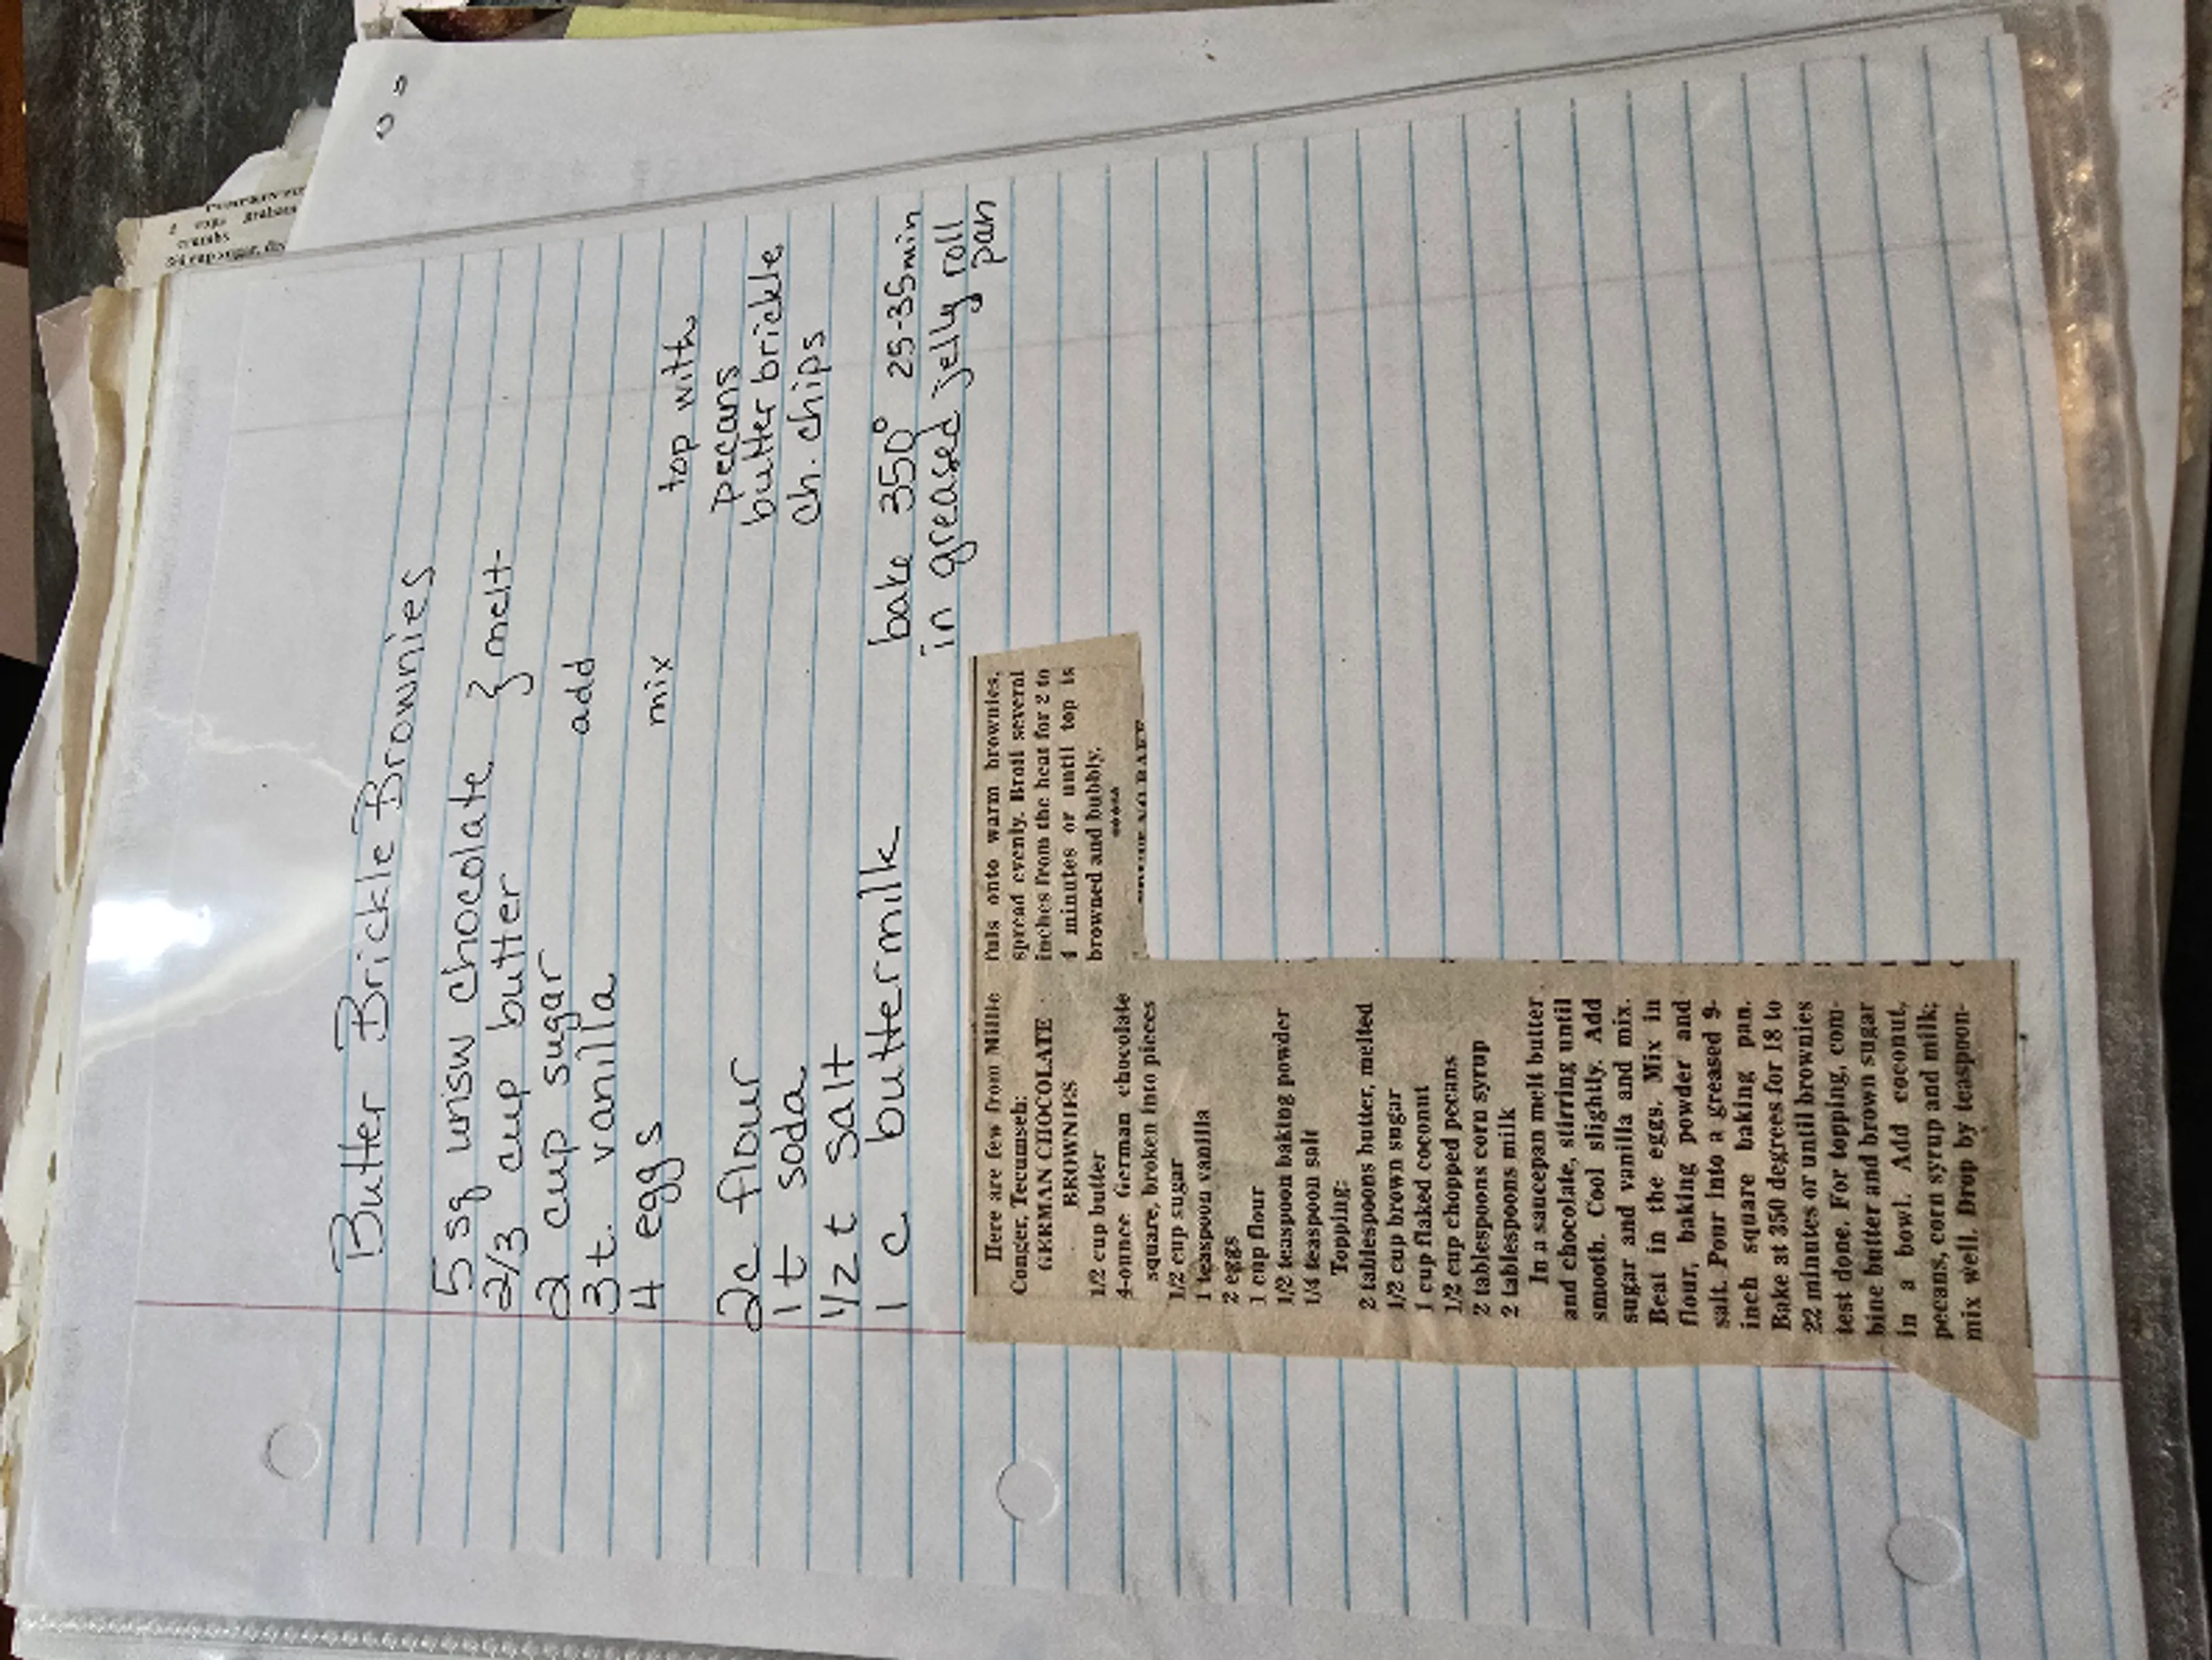 Butter Brickle Brownies
5 sq unsw chocolate } melt
2/3 cup butter
2 cup sugar add
3 t. vanilla
4 eggs mix
top with
pecans
butter brickle
ch. chips
2c flour
1 t soda
1/2 t salt
1 c buttermilk
bake 350° 25-35min
in greased jelly roll
pan
Here are few from Millie
Conger, Tecumseh:
GERMAN CHOCOLATE
BROWNIES
1/2 cup butter
4-ounce German chocolate
square, broken into pieces
1/2 cup sugar
1 teaspoon vanilla
2 eggs
1 cup flour
1/2 teaspoon baking powder
1/4 teaspoon salt
Topping:
2 tablespoons butter, melted
1/2 cup brown sugar
1 cup flaked coconut
1/2 cup chopped pecans
2 tablespoons corn syrup
2 tablespoons milk
In a saucepan melt butter
and chocolate, stirring until
smooth. Cool slightly. Add
sugar and vanilla and mix.
Beat in the eggs. Mix in
flour, baking powder and
salt. Pour into a greased 9-
inch square baking pan.
Bake at 350 degrees for 18 to
22 minutes or until brownies
test done. For topping, com-
bine butter and brown sugar
in a bowl. Add coconut,
pecans, corn syrup and milk;
mix well. Drop by teaspoon-
fuls onto warm brownies,
spread evenly. Broil several
inches from the heat for 2 to
4 minutes or until top is
browned and bubbly.
*****
2 cups graham
crumbs
3/4 cup sugar,